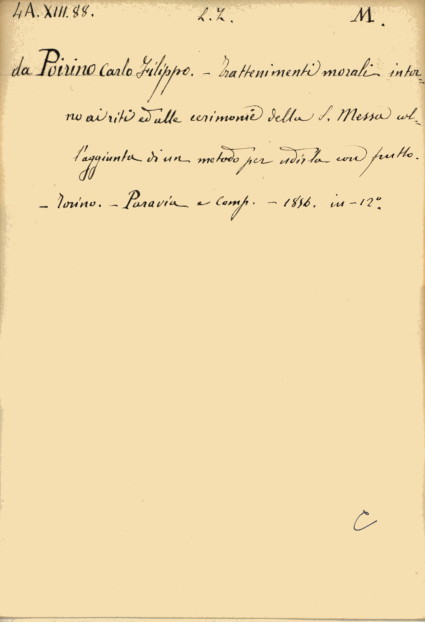 4A. XIII. 88. L. Z. M.
da Poirino Carlo Filippo. - Trattenimenti morali intor=
no ai riti ed alle cerimonie della S. Messa col=
l'aggiunta di un metodo per udirla con frutto.
- Torino. - Paravia e comp. - 1856. in-12°.
C